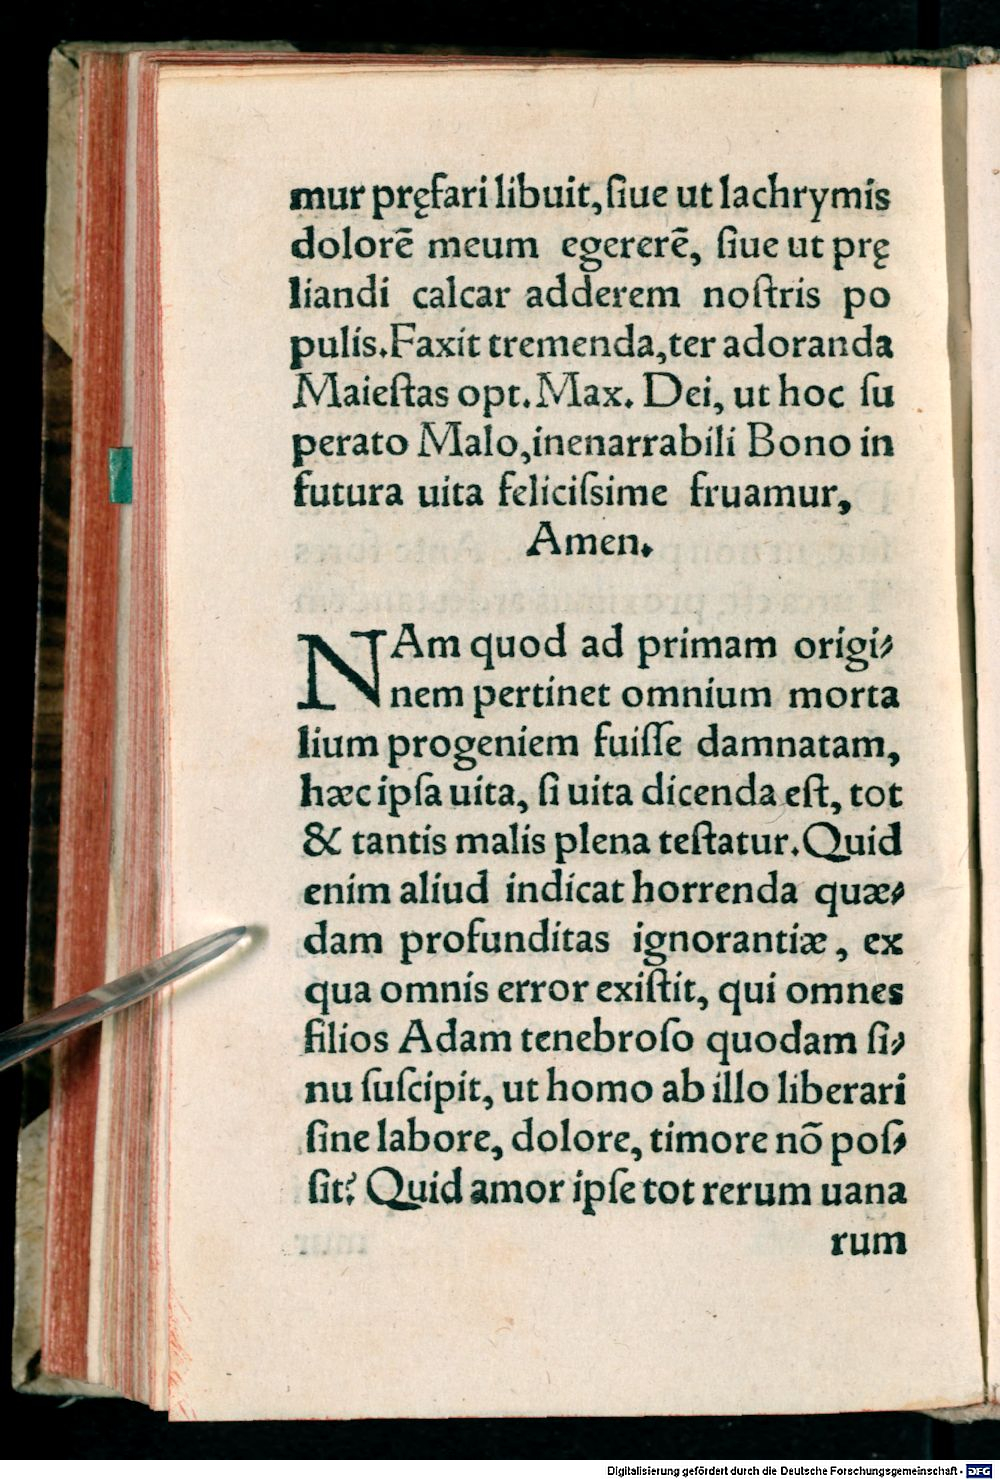 mur pręfari libuit, ſiue ut lachrymis
dolorē meum egererē, ſiue ut prę
liandi calcar adderem noſtris po
pulis. Faxit tremenda, ter adoranda
Maieſtas opt. Max. Dei, ut hoc ſu
perato Malo, inenarrabili Bono in
futura uita feliciſsime fruamur,
Amen.
NAm quod ad primam origi⸗
nem pertinet omnium morta
lium progeniem fuiſſe damnatam,
hæc ipſa uita, ſi uita dicenda eſt, tot
& tantis malis plena teſtatur. Quid
enim aliud indicat horrenda quæ⸗
dam profunditas ignorantiæ, ex
qua omnis error exiſtit, qui omnes
filios Adam tenebroſo quodam ſi⸗
nu ſuſcipit, ut homo ab illo liberari
ſine labore, dolore, timore nō poſ⸗
ſit? Quid amor ipſe tot rerum uana
rum
Digitalisierung gefördert durch die Deutsche Forschungsgemeinschaft - DFG